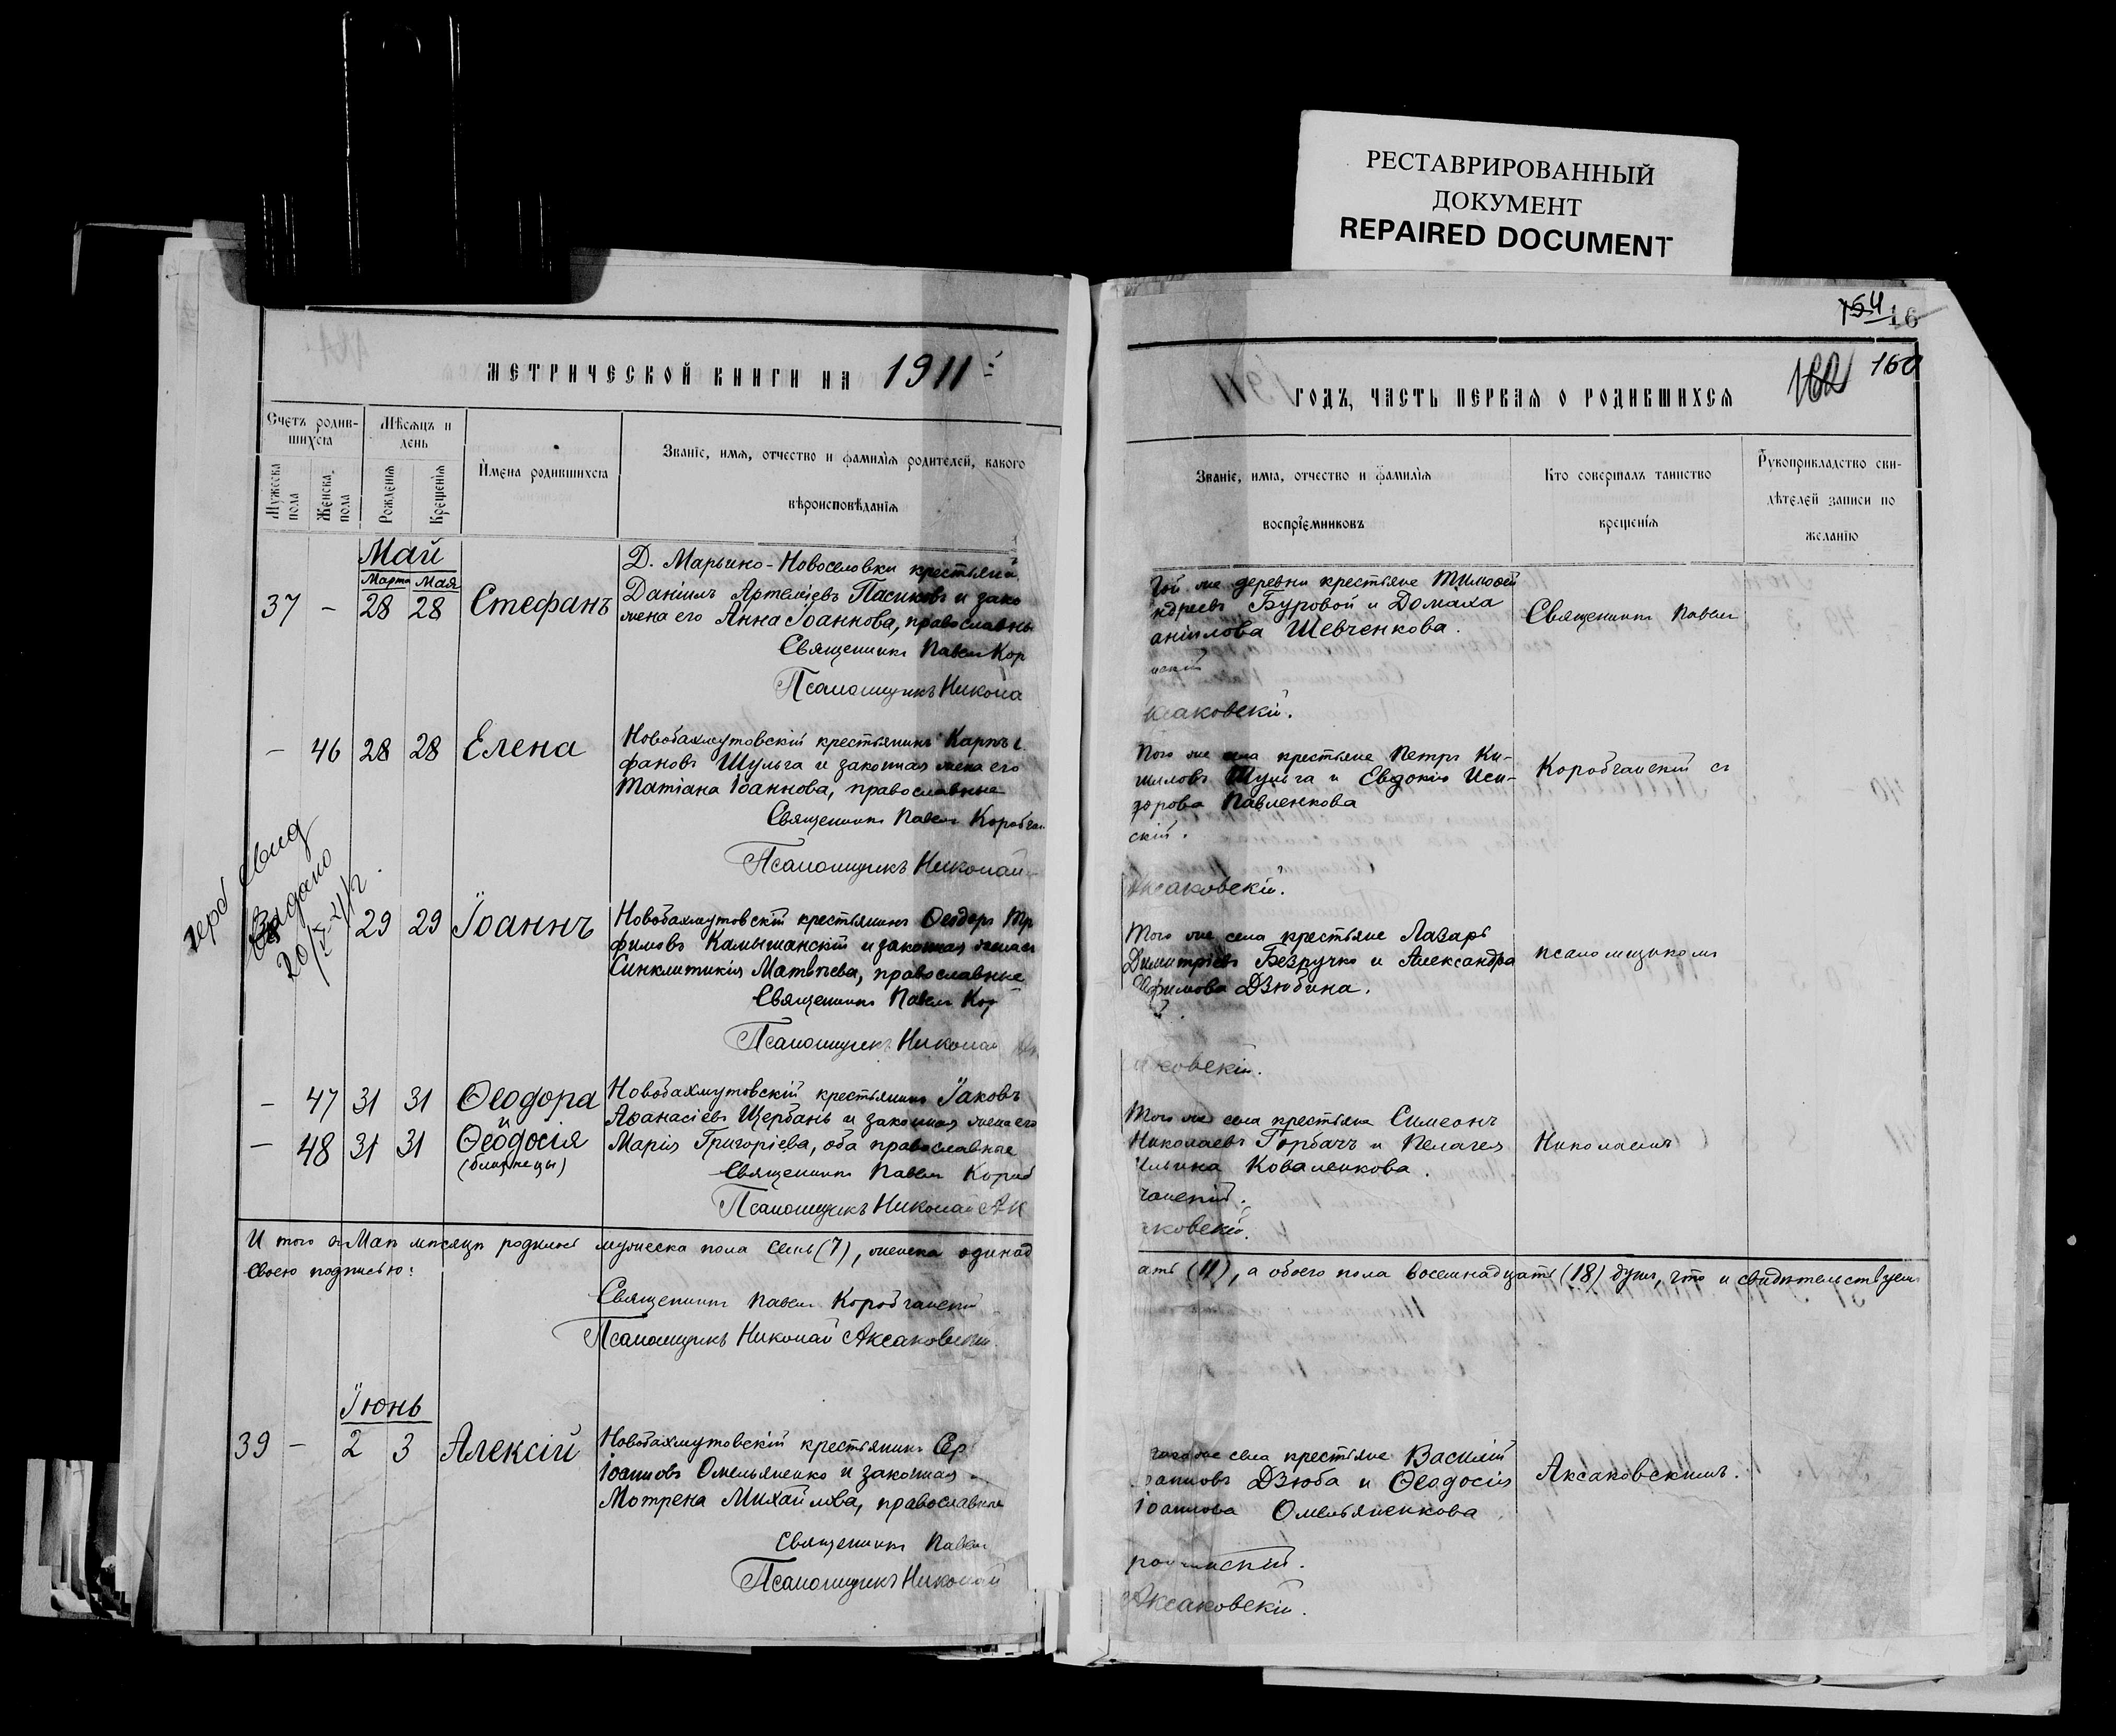 РЕСТАВРИРОВАННЫЙ
ДОКУМЕНТ
REPAIRED DOCUMENT
154 16
160
МЕТРИЧЕСКОЙ КНИГИ НА 1911
Счетъ родив-
шихсѧ
Мѣсѧцъ и
день
Мужеска
пола
Женска.
пола
Рожденія
Крещенія
Имена родившихсѧ
Званіе, имѧ, отчество и фамиліѧ родителей, какого
вѣроисповѣданіѧ
Май
Марта Мая
37 - 28 28 Стефанъ
Д. Марьино-Новоселовки крестьянин
Даніилъ Артеміевъ Пасиковъ и зако
жена его Анна Іоаннова, православны
Священникъ Павелъ Кор
Псаломщикъ Никола
- 46 28 28 Елена
Новобахмутовскій крестьянинъ Карпъ
фановъ Шульга и законная жена его
Татіана Іоаннова, православные
Священникъ Павелъ Коробчан
Псаломщикъ Николай
Выдано
29 29 Іоаннъ
Новобахмутовскій крестьянинъ Ѳеодоръ Тр
фимовъ Камышанскій и законная жена
Синклитикія Матвѣева, православные
Священникъ Павелъ Кор
Псаломщикъ Николай
- 47 31 31 Ѳеодора
и
- 48 31 31 Ѳеодосія
(близнецы)
Новобахмутовскій крестьянинъ Іаковъ
Аѳанасіевъ Щербань и законная жена его
Марія Григоріева, оба православные
Священникъ Павелъ Короб
Псаломщикъ Николай Ак
И того въ Маѣ мѣсяцѣ родилось мужеска пола семь (7), женска одинад
своею подписью:
Священникъ Павелъ Коробчанскій
Псаломщикъ Николай Аксаковскій.
Іюнь
39 - 2 3 Алексій
Новобахмутовскій крестьянинъ Сер
Іоанновъ Омельяненко и законная
Мотрена Михайлова, православные
Священникъ Павелъ
Псаломщикъ Николай
ГОДЪ, ЧАСТЬ ПЕРВАѦ О РОДИВШИХСѦ
Званіе, имѧ, отчество и фамиліѧ
воспріемниковъ
Кто совершалъ таинство
крещеніѧ
Рукоприкладство сви-
дѣтелей записи по
желанію
Той же деревни крестьяне Тимоѳей
ндреевъ Буровой и Домаха
аніилова Шевченкова.
нскій
ксаковскій.
Священникъ Павелъ
Того же села крестьяне Петръ Ки-
рилловъ Шульга и Евдокія Иси-
дорова Павленкова
скій.
Аксаковскій.
Коробчанскій съ
Того же села крестьяне Лазарь
Димитріевъ Безручко и Александра
Ефимова Дзюбина.
й.
ковскій.
псаломщикомъ
Того же села крестьяне Симеонъ
Николаевъ Горбачъ и Пелагея
Ильина Коваленкова.
чанскій.
ковскій.
Николаемъ
ать (11), а обоего пола восемнадцать (18) душъ, что и свидѣтельствуемъ
же села крестьяне Василій
оанновъ Дзюба и Ѳеодосія
Іоаннова Омельяненкова
Аксаковскій.
Аксаковскимъ.